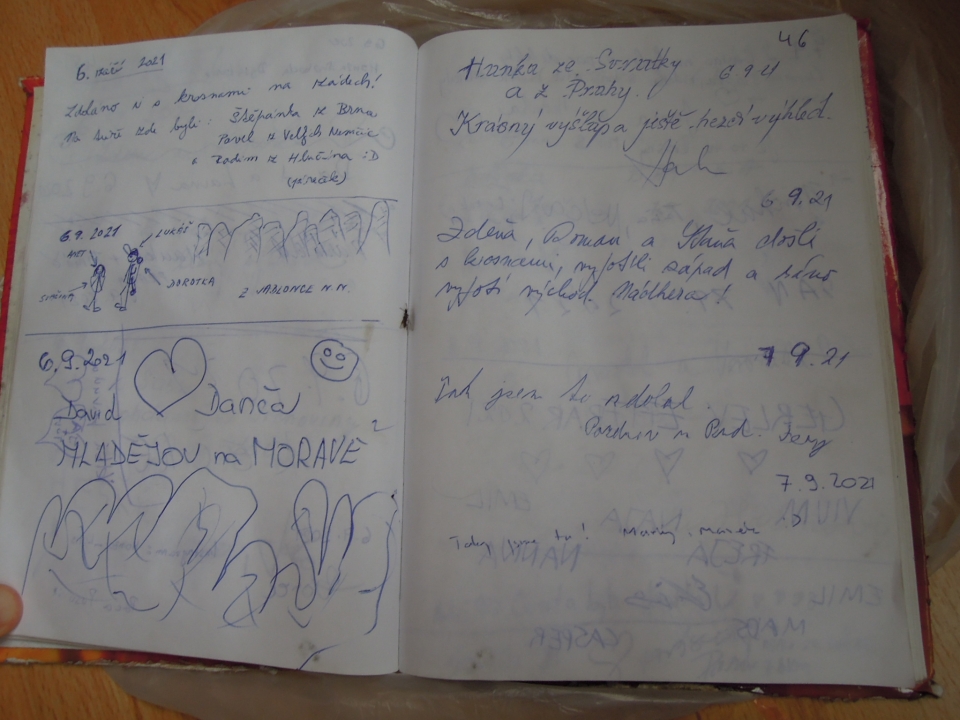 6. září 2021
Zdoláno i s krosnami na zádech!
Na túře zde byli: Štěpánka z Brna
Pavel z Velkých Němčic
a Radim z Hlučína :D
6.9.2021
LUKÁŠ
DOROTKA
Z JABLONCE N.N.
6.9.2021
David Danča
MLADĚJOV na MORAVĚ
46
Hanka ze Svratky 6.9.21
a z Prahy.
Krásný výšlap a ještě hezčí výhled.
6.9.21
Zdeňa, Roman, a Staňa došli
s krosnami, vyfotili západ a ráno
vyfotí východ. Nádhera!
7 9.21
Tak jsem to zdolal.
7.9.2021
Taky jsme tu!